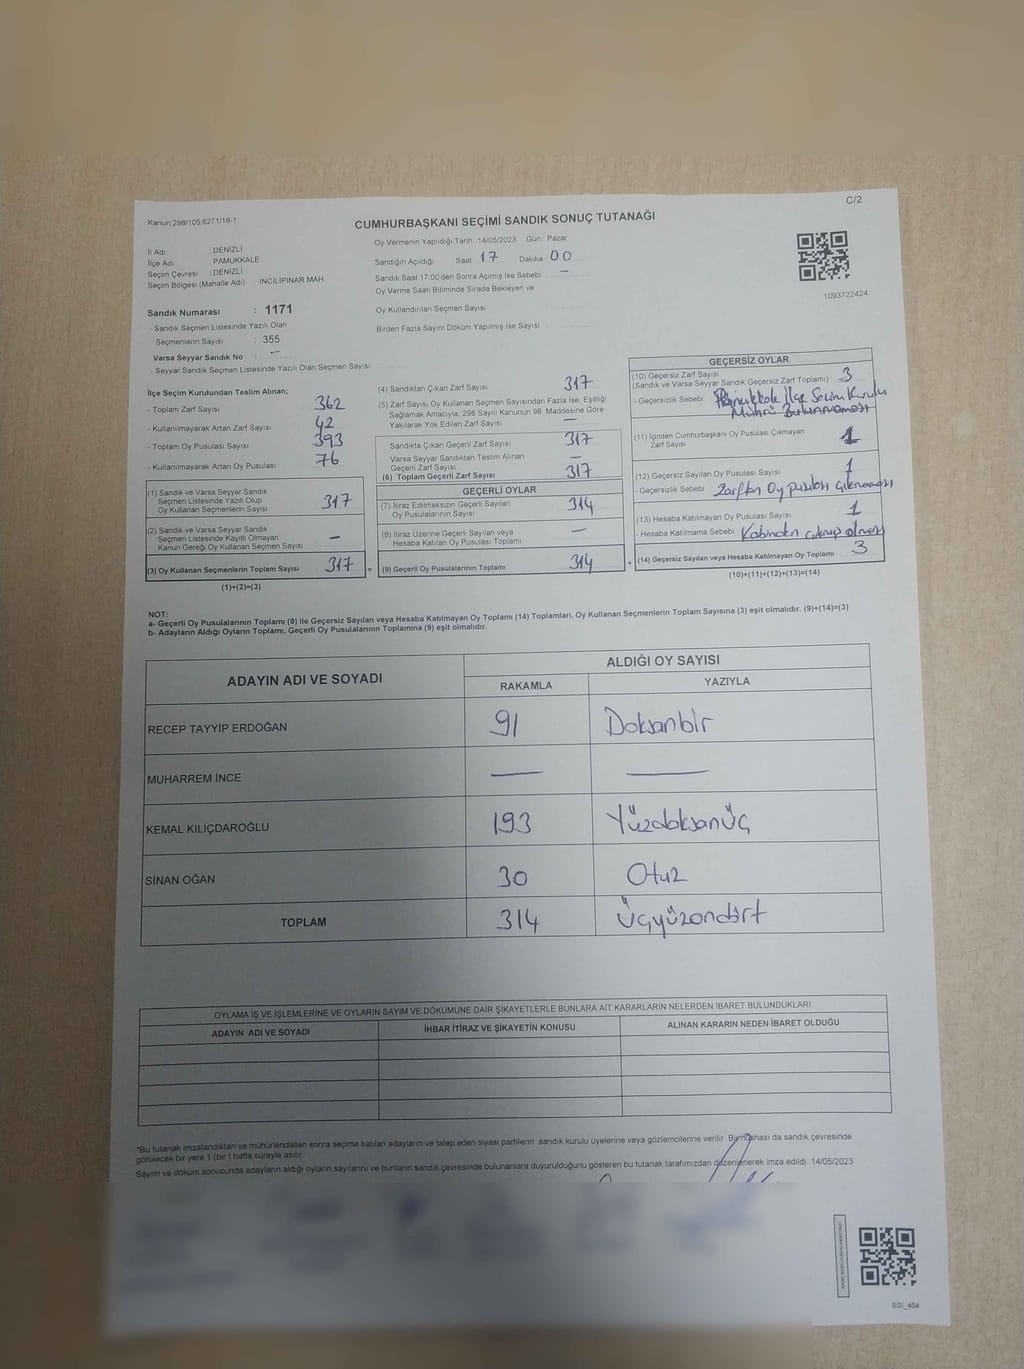 C/2
Kanun;298/105,6271/18-1
CUMHURBAŞKANI SEÇİMİ SANDIK SONUÇ TUTANAĞI
İl Adı DENİZLİ
İlçe Adı PAMUKKALE
Seçim Çevresi : DENİZLİ
Seçim Bölgesi (Mahalle Adı) İNCİLİPINAR MAH.
Oy Vermenin Yapıldığı Tarih 14/05/2023 Gün : Pazar
Sandığın Açıldığı Saat 17 Dakika 00
Sandık Saat 17:00'den Sonra Açımış İse Sebebi —
Oy Verme Saati Bitiminde Sırada Bekleyen ve
Oy Kullandırılan Seçmen Sayısı
Birden Fazla Sayım Döküm Yapılmış İse Sayısı
1093722424
Sandık Numarası : 1171
- Sandık Seçmen Listesinde Yazılı Olan
Seçmenlerin Sayısı : 355
Varsa Seyyar Sandık No : —
- Seyyar Sandık Seçmen Listesinde Yazılı Olan Seçmen Sayısı
İlçe Seçim Kurulundan Teslim Alınan;
- Toplam Zarf Sayısı 362
- Kullanılmayarak Artan Zarf Sayısı 42
- Toplam Oy Pusulası Sayısı 393
- Kullanılmayarak Artan Oy Pusulası 76
(1) Sandık ve Varsa Seyyar Sandık
Seçmen Listesinde Yazılı Olup
Oy Kullanan Seçmenlerin Sayısı 317
(2) Sandık ve Varsa Seyyar Sandık
Seçmen Listesinde Kayıtlı Olmayan
Kanun Gereği Oy Kullanan Seçmen Sayısı —
(3) Oy Kullanan Seçmenlerin Toplam Sayısı 317 =
(1)+(2)=(3)
(4) Sandıktan Çıkan Zarf Sayısı 317
(5) Zarf Sayısı Oy Kullanan Seçmen Sayısından Fazla İse, Eşitliği
Sağlamak Amacıyla, 298 Sayılı Kanunun 98. Maddesine Göre
Yakılarak Yok Edilen Zarf Sayısı —
Sandıkta Çıkan Geçerli Zarf Sayısı 317
Varsa Seyyar Sandıktan Teslim Alınan
Geçerli Zarf Sayısı —
(6) Toplam Geçerli Zarf Sayısı 317
GEÇERLİ OYLAR
(7) İtiraz Edilmeksizin Geçerli Sayılan
Oy Pusulalarının Sayısı 314
(8) İtiraz Üzerine Geçerli Sayılan veya
Hesaba Katılan Oy Pusulası Toplamı —
(9) Geçerli Oy Pusulalarının Toplamı 314 +
GEÇERSİZ OYLAR
(10) Geçersiz Zarf Sayısı
(Sandık ve Varsa Seyyar Sandık Geçersiz Zarf Toplamı) 3
- Geçersizlik Sebebi Pamukkale İlçe Seçim Kurulu
Mührü Bulunmaması
(11) İçinden Cumhurbaşkanı Oy Pusulası Çıkmayan
Zarf Sayısı 1
(12) Geçersiz Sayılan Oy Pusulası Sayısı 1
- Geçersizlik Sebebi Zarftan Oy pusulası çıkmaması
(13) Hesaba Katılmayan Oy Pusulası Sayısı 1
- Hesaba Katılmama Sebebi Kabinden çıkmış olması
(14) Geçersiz Sayılan veya Hesaba Katılmayan Oy Toplamı 3
(10)+(11)+(12)+(13)=(14)
NOT:
a- Geçerli Oy Pusulalarının Toplamı (9) ile Geçersiz Sayılan veya Hesaba Katılmayan Oy Toplamı (14) Toplamları, Oy Kullanan Seçmenlerin Toplam Sayısına (3) eşit olmalıdır. (9)+(14)=(3)
b- Adayların Aldığı Oyların Toplamı, Geçerli Oy Pusulalarının Toplamına (9) eşit olmalıdır.
ADAYIN ADI VE SOYADI ALDIĞI OY SAYISI
RAKAMLA YAZIYLA
RECEP TAYYİP ERDOĞAN 91 Doksanbir
MUHARREM İNCE — —
KEMAL KILIÇDAROĞLU 193 Yüzdoksanüç
SİNAN OĞAN 30 Otuz
TOPLAM 314 Üçyüzondört
OYLAMA İŞ VE İŞLEMLERİNE VE OYLARIN SAYIM VE DÖKÜMÜNE DAİR ŞİKAYETLERLE BUNLARA AİT KARARLARIN NELERDEN İBARET BULUNDUKLARI
ADAYIN ADI VE SOYADI İHBAR İTİRAZ VE ŞİKAYETİN KONUSU ALINAN KARARIN NEDEN İBARET OLDUĞU
*Bu tutanak imzalandıktan ve mühürlendikten sonra seçime katılan adayların ve talep eden siyasi partilerin sandık kurulu üyelerine veya gözlemcilerine verilir. Bir nüshası da sandık çevresinde
görülecek bir yere 1 (bir) hafta süreyle asılır.
Sayım ve döküm sonucunda adayların aldığı oyların sayılarını ve bunların sandık çevresinde bulunanlara duyurulduğunu gösteren bu tutanak tarafımızdan düzenlenerek imza edildi. 14/05/2023
SSİ_404